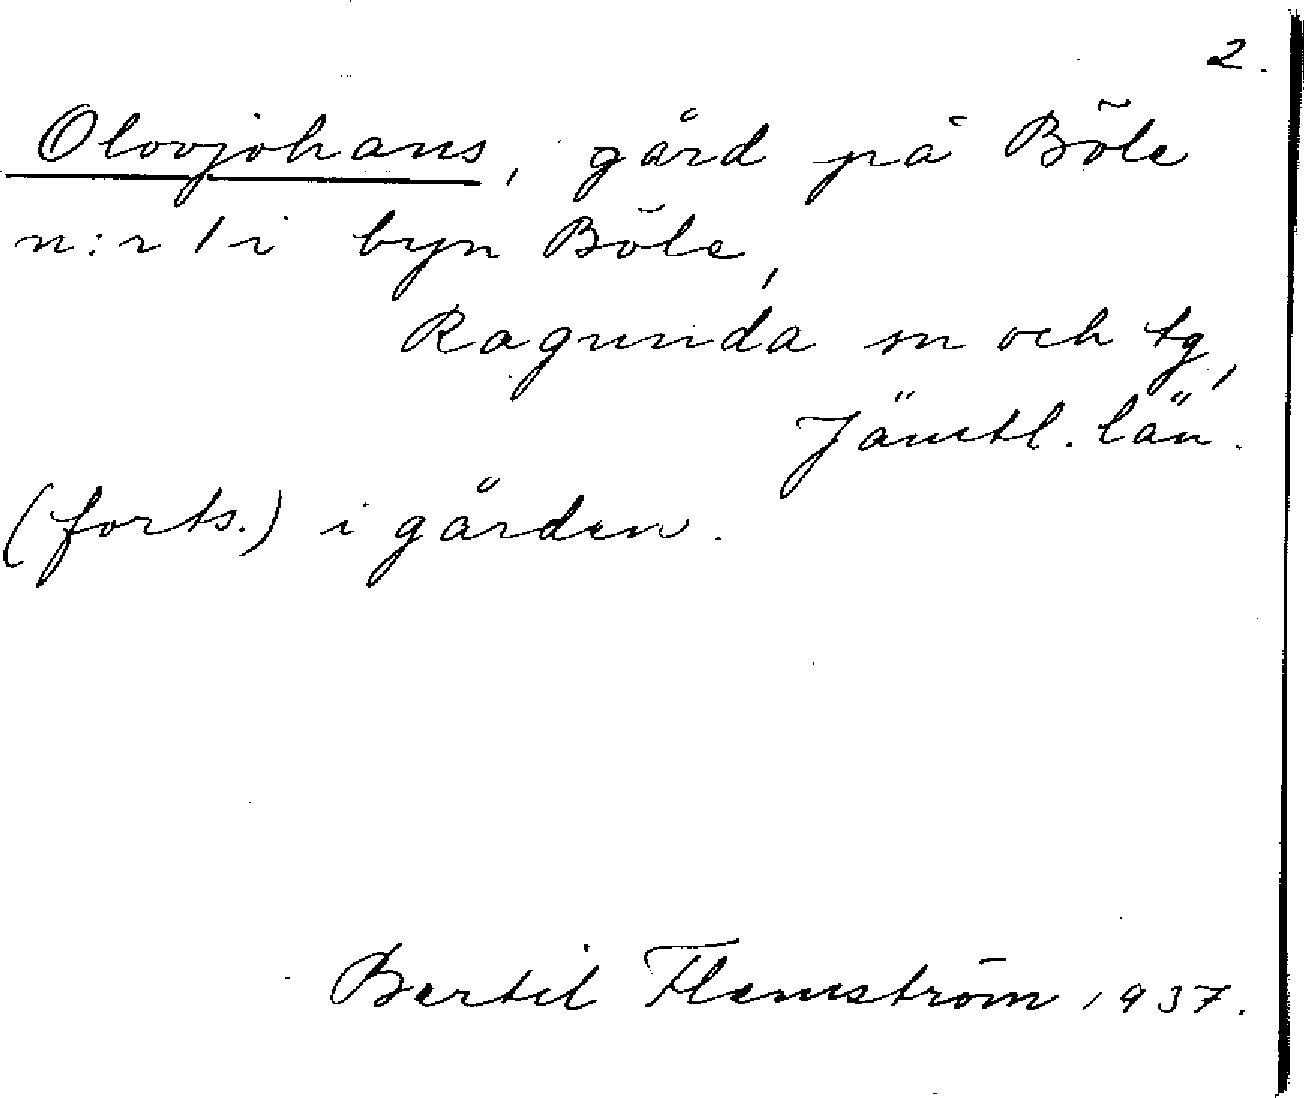 2.
Olovjohans, gård på Böle
n:r 1 i byn Böle,
Ragunda sn och tg,
Jämtl. län.
(forts.) i gården.
Bertil Flemström 1937.